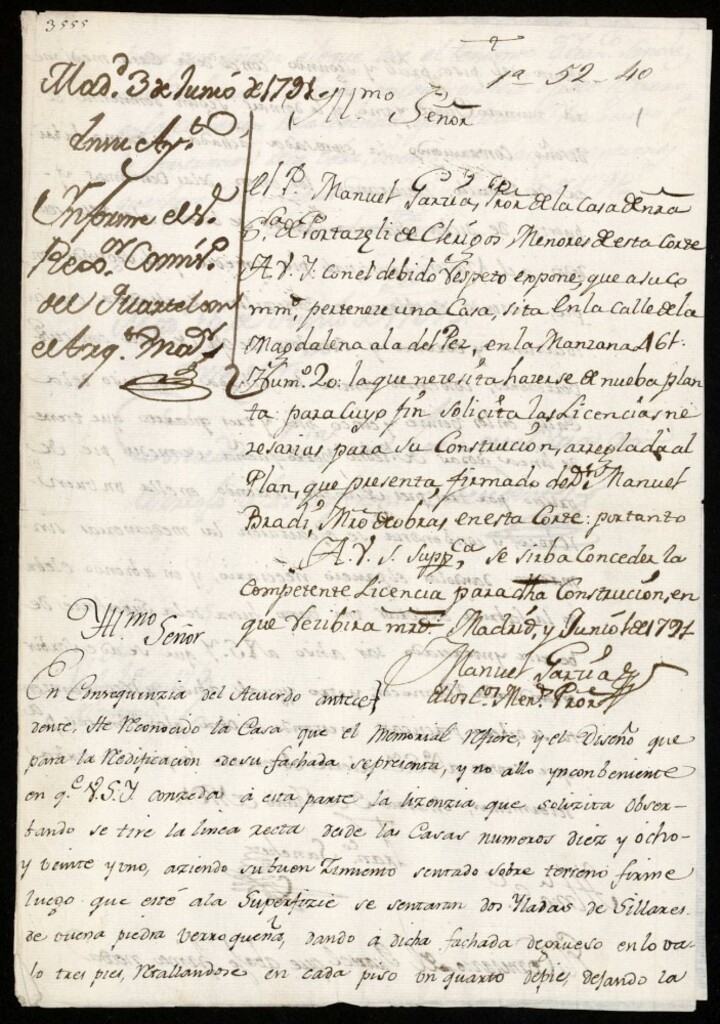 3555
1ª 52-40
Madd. 3 de Junio de 1791
En su Ayto.
Informe el Sr.
Rexor. Comivo.
del Quartel con
el Arqto. Mayr.
Yllmo Señor
El Pe. Manuel Garzia, Pror. de la Casa de nra
Sra. de Portazeli de Clerigos Menores de esta Corte
A. V. I. con el debido respeto expone, que a su co
mmd. pertenece una Casa, sita en la calle de la
Magdalena a la del Pez, en la Manzana 461.
Numo. 20: la que necesita hazerse de nueba plan
ta: para cuyo fin solicita las Licencias ne
cesarias para su Construcion, arreglada al
Plan, que presenta, firmado de Dn. Manuel
Bradi, Mro de obras, en esta Corte: por tanto
A. V. I. Suppca. se sirba Conceder la
Competente Licencia para dha Construcion, en
que recibira mrd. Madrid, y Junio 1 de 1791
Manuel Garzia
de los Cos. Mens. Pror
Yllmo Señor
En Consequenzia del Acuerdo antece
dente, He Reconocido la Casa que el Memorial refiere, y el Diseño que
para la Redificacion de su fachada se presenta, y no allo ynconbeniente
en qe. V.S.I. conzeda á esta parte la lizenzia que solizita obser-
bando se tire la linea recta desde las Casas numeros diez y ocho-
y veinte y uno, aziendo su buen zimiento sentado sobre terreno firme
luego que esté a la superfizie se sentaran dos Yladas de Sillares
de buena piedra verroqueña, dando á dicha fachada de grueso en lo va-
lo tres pies, Retallandose en cada piso un quarto de pie, dejando la